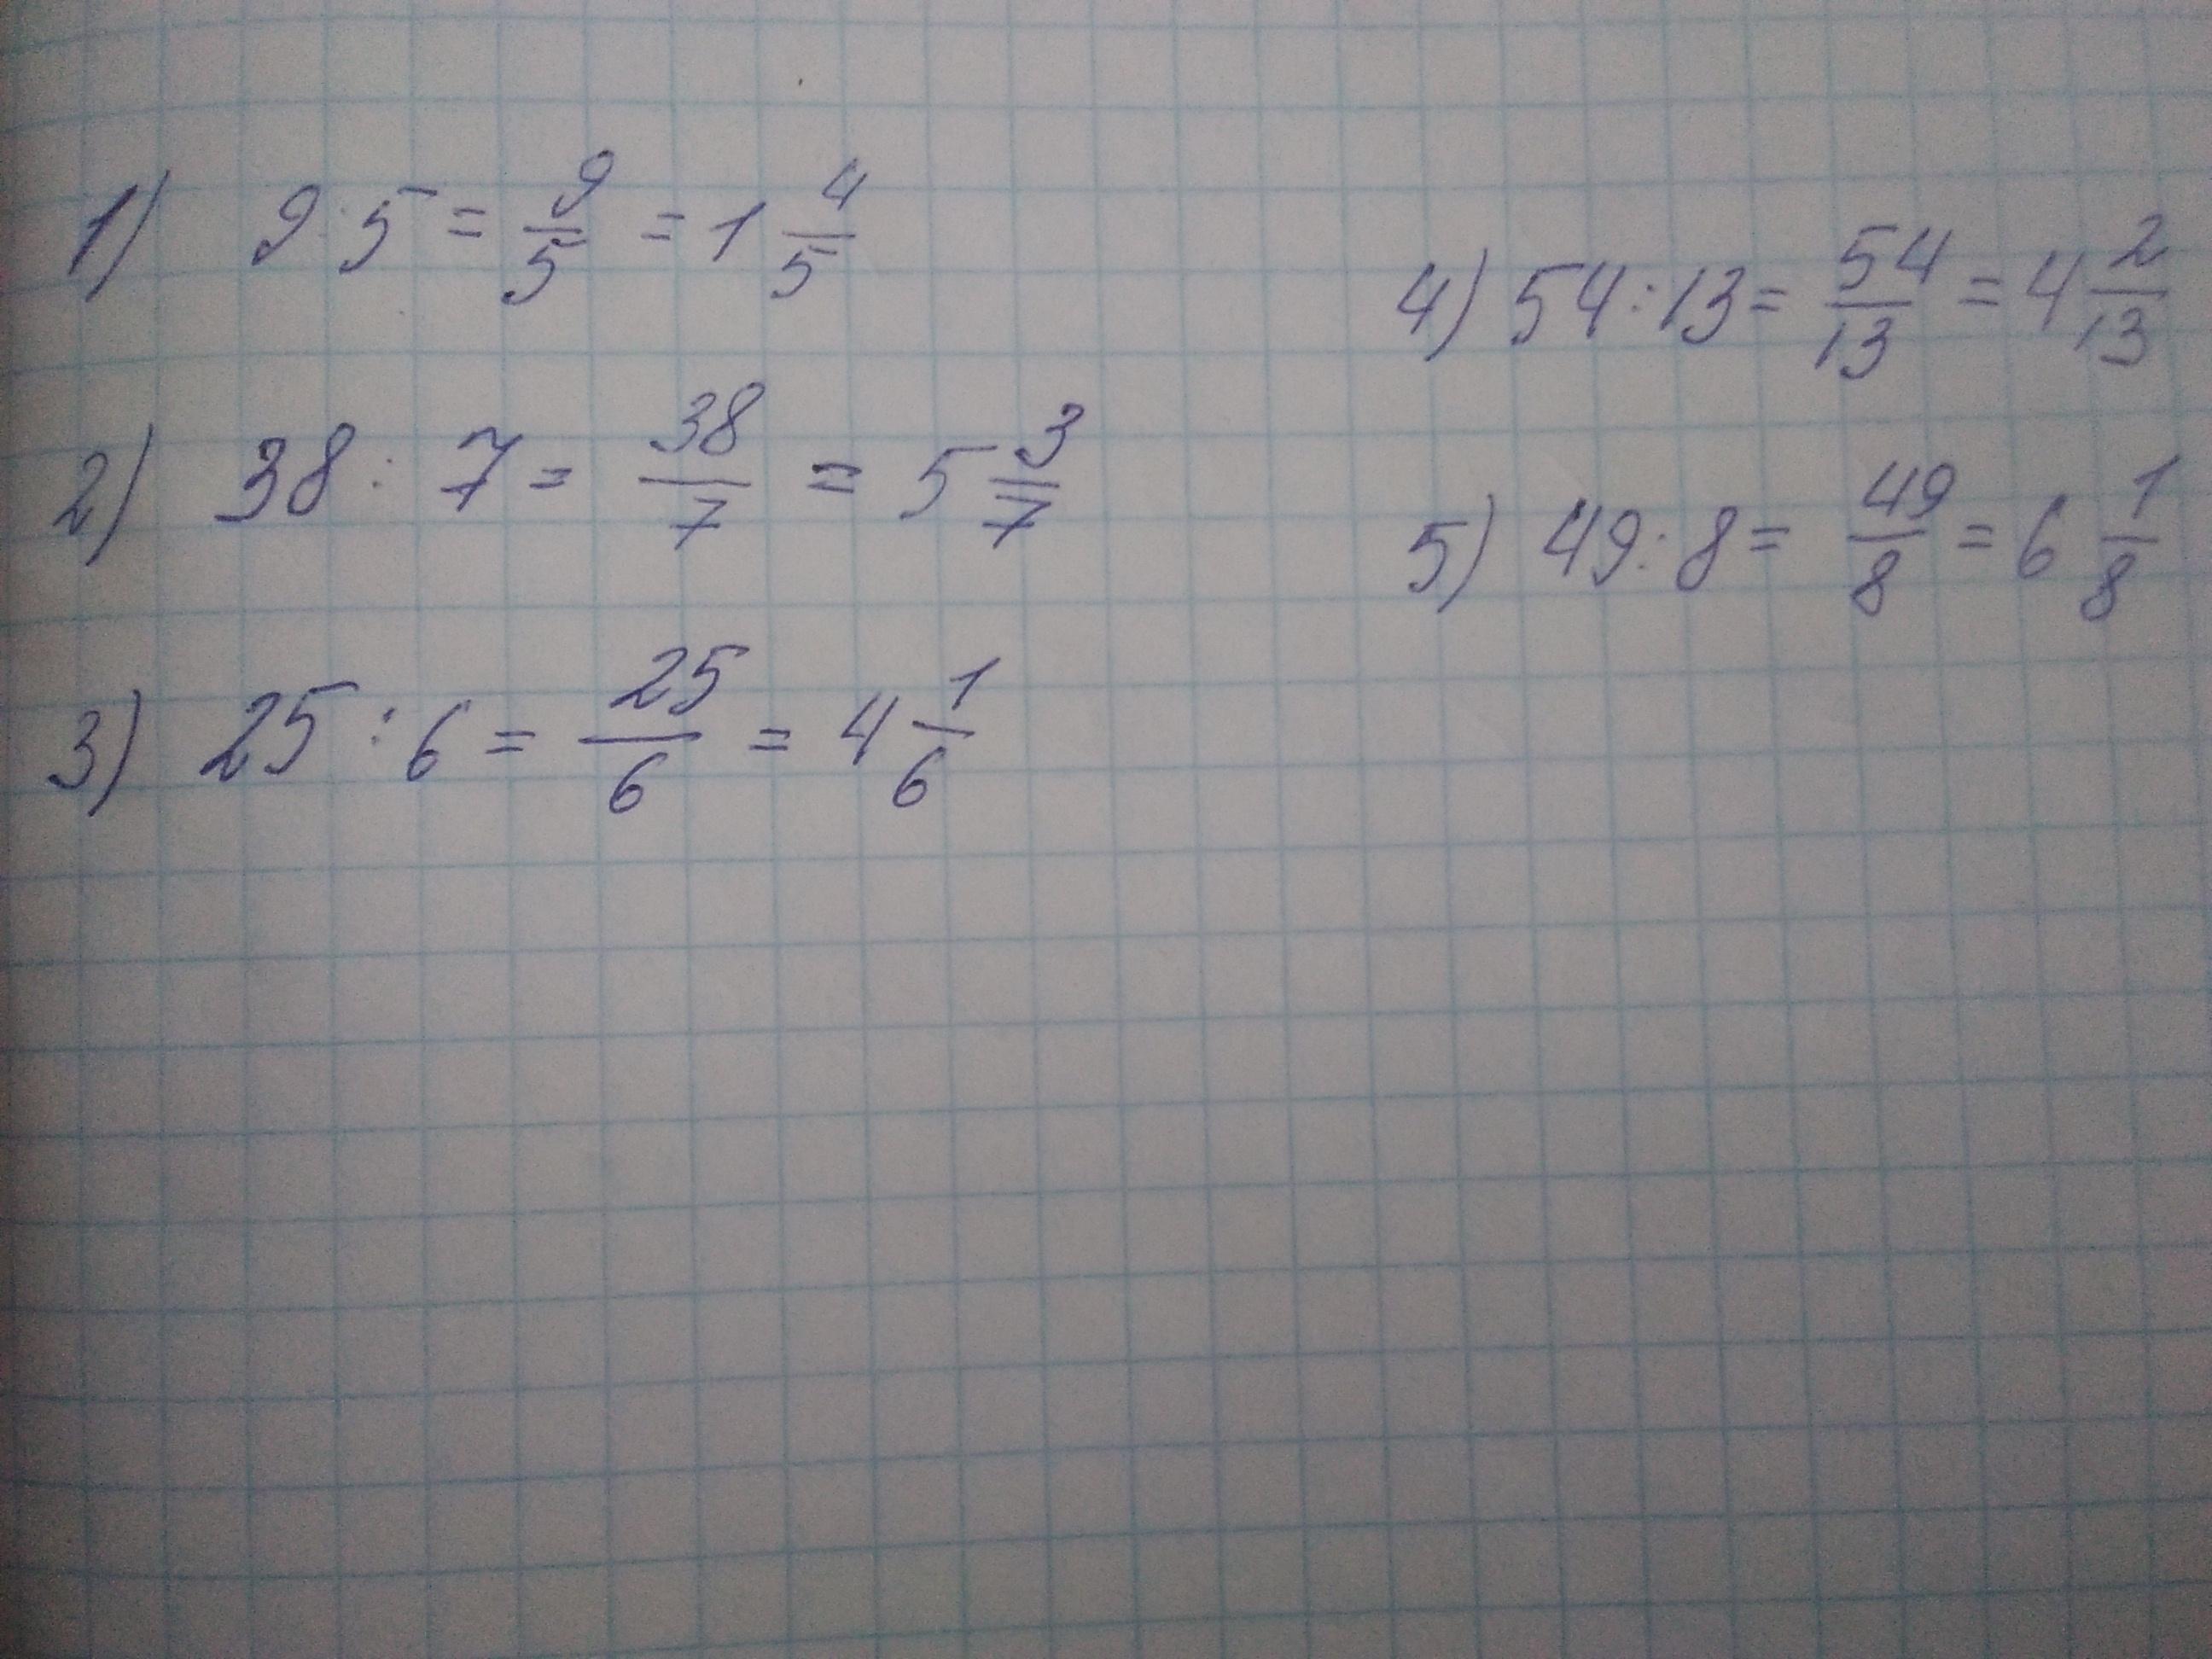 1) 9:5 = 9/5 = 1 4/5
2) 38 : 7 = 38/7 = 5 3/7
3) 25 : 6 = 25/6 = 4 1/6
4) 54:13 = 54/13 = 4 2/13
5) 49:8 = 49/8 = 6 1/8